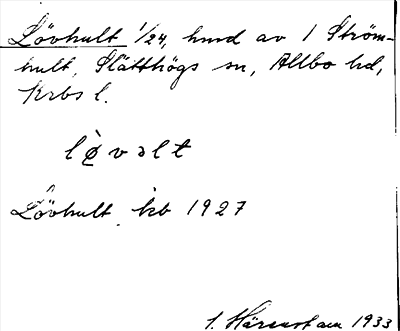 Lövhult 1/24, hmd av 1 Ström-
hult, Slätthögs sn, Allbo hd,
Krbs l.
lø̀vəlt
Lövhult kb 1927
1933